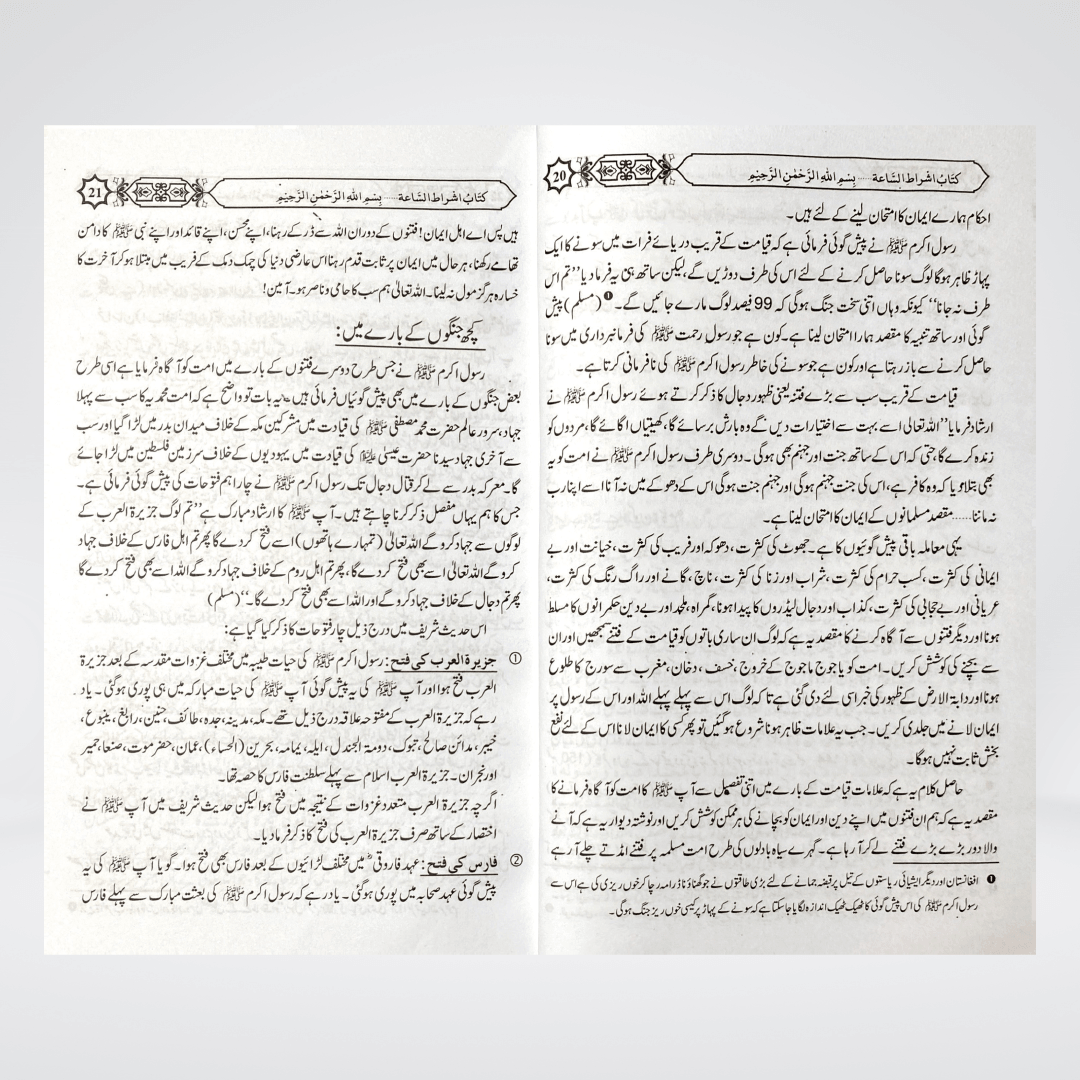 20 کتاب اشراط الساعة ..... بِسْمِ اللهِ الرَّحْمٰنِ الرَّحِيْمِ
احکام ہمارے ایمان کا امتحان لینے کے لئے ہیں۔
رسول اکرم ﷺ نے پیش گوئی فرمائی ہے کہ قیامت کے قریب دریائے فرات میں سونے کا ایک
پہاڑ ظاہر ہوگا لوگ سونا حاصل کرنے کے لئے اس کی طرف دوڑیں گے، لیکن ساتھ ہی یہ فرما دیا ’’تم اس
طرف نہ جانا‘‘ کیونکہ وہاں اتنی سخت جنگ ہوگی کہ 99 فیصد لوگ مارے جائیں گے۔❶ (مسلم) پیش
گوئی اور ساتھ تنبیہ کا مقصد ہمارا امتحان لینا ہے۔ کون ہے جو رسول رحمت ﷺ کی فرمانبرداری میں سونا
حاصل کرنے سے باز رہتا ہے اور کون ہے جو سونے کی خاطر رسول اکرم ﷺ کی نافرمانی کرتا ہے۔
قیامت کے قریب سب سے بڑے فتنہ یعنی ظہور دجال کا ذکر کرتے ہوئے رسول اکرم ﷺ نے
ارشاد فرمایا ’’اللہ تعالیٰ اسے بہت سے اختیارات دیں گے وہ بارش برسائے گا، کھیتیاں اگائے گا، مردوں کو
زندہ کرے گا، حتی کہ اس کے ساتھ جنت اور جہنم بھی ہوگی۔ دوسری طرف رسول اکرم ﷺ نے امت کو یہ
بھی بتلا دیا کہ وہ کافر ہے، اس کی جنت جہنم ہوگی اور جہنم جنت ہوگی اس کے دھوکے میں نہ آنا اسے اپنا رب
نہ ماننا ..... مقصد مسلمانوں کے ایمان کا امتحان لینا ہے۔
یہی معاملہ باقی پیش گوئیوں کا ہے۔ جھوٹ کی کثرت، دھوکہ اور فریب کی کثرت، خیانت اور بے
ایمانی کی کثرت، کسب حرام کی کثرت، شراب اور زنا کی کثرت، ناچ، گانے اور راگ رنگ کی کثرت،
عریانی اور بے حجابی کی کثرت، کذاب اور دجال لیڈروں کا پیدا ہونا، گمراہ، ملحد اور بے دین حکمرانوں کا مسلط
ہونا اور دیگر فتنوں سے آگاہ کرنے کا مقصد یہ ہے کہ لوگ ان ساری باتوں کو قیامت کے فتنے سمجھیں اور ان
سے بچنے کی کوشش کریں۔ امت کو یاجوج ماجوج کے خروج، خسف، دخان، مغرب سے سورج کا طلوع
ہونا اور دابۃ الارض کے ظہور کی خبر اسی لئے دی گئی ہے تاکہ لوگ اس سے پہلے پہلے اللہ اور اس کے رسول پر
ایمان لانے میں جلدی کریں۔ جب یہ علامات ظاہر ہونا شروع ہو گئیں تو پھر کسی کا ایمان لانا اس کے لئے نفع
بخش ثابت نہیں ہوگا۔
حاصل کلام یہ ہے کہ علامات قیامت کے بارے میں اتنی تفصیل سے آپ ﷺ کا امت کو آگاہ فرمانے کا
مقصد یہ ہے کہ ہم ان فتنوں میں اپنے دین اور ایمان کو بچانے کی ہر ممکن کوشش کریں اور نوشتہ دیوار یہ ہے کہ آنے
والا دور بڑے بڑے فتنے لے کر آ رہا ہے۔ گہرے سیاہ بادلوں کی طرح امت مسلمہ پر فتنے امڈتے چلے آ رہے
❶ افغانستان اور دیگر ایشیائی ریاستوں کے تیل پر قبضہ جمانے کے لئے بڑی طاقتوں نے جو گھناؤنا ڈرامہ رچا کر خوں ریزی کی ہے اس سے
رسول اکرم ﷺ کی اس پیش گوئی کا ٹھیک ٹھیک اندازہ لگایا جا سکتا ہے کہ سونے کے پہاڑ پر کیسی خوں ریز جنگ ہوگی۔
21 کتاب اشراط الساعة ..... بِسْمِ اللهِ الرَّحْمٰنِ الرَّحِيْمِ
ہیں پس اے اہل ایمان! فتنوں کے دوران اللہ سے ڈر کے رہنا، اپنے محسن، اپنے قائد اور اپنے نبی ﷺ کا دامن
تھامے رکھنا، ہر حال میں ایمان پر ثابت قدم رہنا اس عارضی دنیا کی چمک دمک کے فریب میں مبتلا ہو کر آخرت کا
خسارہ ہرگز مول نہ لینا۔ اللہ تعالیٰ ہم سب کا حامی و ناصر ہو۔ آمین!
کچھ جنگوں کے بارے میں:
رسول اکرم ﷺ نے جس طرح دوسرے فتنوں کے بارے میں امت کو آگاہ فرمایا ہے اسی طرح
بعض جنگوں کے بارے میں بھی پیش گوئیاں فرمائی ہیں۔ یہ بات تو واضح ہے کہ امت محمدیہ کا سب سے پہلا
جہاد، سرور عالم حضرت محمد مصطفی ﷺ کی قیادت میں مشرکین مکہ کے خلاف میدان بدر میں لڑا گیا اور سب
سے آخری جہاد سیدنا حضرت عیسیٰ علیہ السلام کی قیادت میں یہودیوں کے خلاف سرزمین فلسطین میں لڑا جائے
گا۔ معرکہ بدر سے لے کر قتال دجال تک رسول اکرم ﷺ نے چار اہم فتوحات کی پیش گوئی فرمائی ہے۔
جس کا ہم یہاں مفصل ذکر کرنا چاہتے ہیں۔ آپ ﷺ کا ارشاد مبارک ہے ’’تم لوگ جزیرۃ العرب کے
لوگوں سے جہاد کرو گے اللہ تعالیٰ (تمہارے ہاتھوں) اسے فتح کر دے گا پھر تم اہل فارس کے خلاف جہاد
کرو گے اللہ تعالیٰ اسے بھی فتح کر دے گا، پھر تم اہل روم کے خلاف جہاد کرو گے اللہ اسے بھی فتح کر دے گا
پھر تم دجال کے خلاف جہاد کرو گے اور اللہ اسے بھی فتح کر دے گا۔‘‘ (مسلم)
اس حدیث شریف میں درج ذیل چار فتوحات کا ذکر کیا گیا ہے:
① جزیرۃ العرب کی فتح: رسول اکرم ﷺ کی حیات طیبہ میں مختلف غزوات مقدسہ کے بعد جزیرۃ
العرب فتح ہوا اور آپ ﷺ کی یہ پیش گوئی آپ ﷺ کی حیات مبارکہ میں ہی پوری ہوگئی۔ یاد
رہے کہ جزیرۃ العرب کے مفتوحہ علاقہ درج ذیل تھے۔ مکہ، مدینہ، جدہ، طائف، حنین، رابغ، ینبوع،
خیبر، مدائن صالح، تبوک، دومۃ الجندل، ایلہ، یمامہ، بحرین (الحساء)، عمان، حضرموت، صنعا، حمیر
اور نجران۔ جزیرۃ العرب اسلام سے پہلے سلطنت فارس کا حصہ تھا۔
اگرچہ جزیرۃ العرب متعدد غزوات کے نتیجہ میں فتح ہوا لیکن حدیث شریف میں آپ ﷺ نے
اختصار کے ساتھ صرف جزیرۃ العرب کی فتح کا ذکر فرما دیا۔
② فارس کی فتح: عہد فاروقیؓ میں مختلف لڑائیوں کے بعد فارس بھی فتح ہوا۔ گویا آپ ﷺ کی یہ
پیش گوئی عہد صحابہ میں پوری ہوگئی۔ یاد رہے کہ رسول اکرم ﷺ کی بعثت مبارک سے پہلے فارس